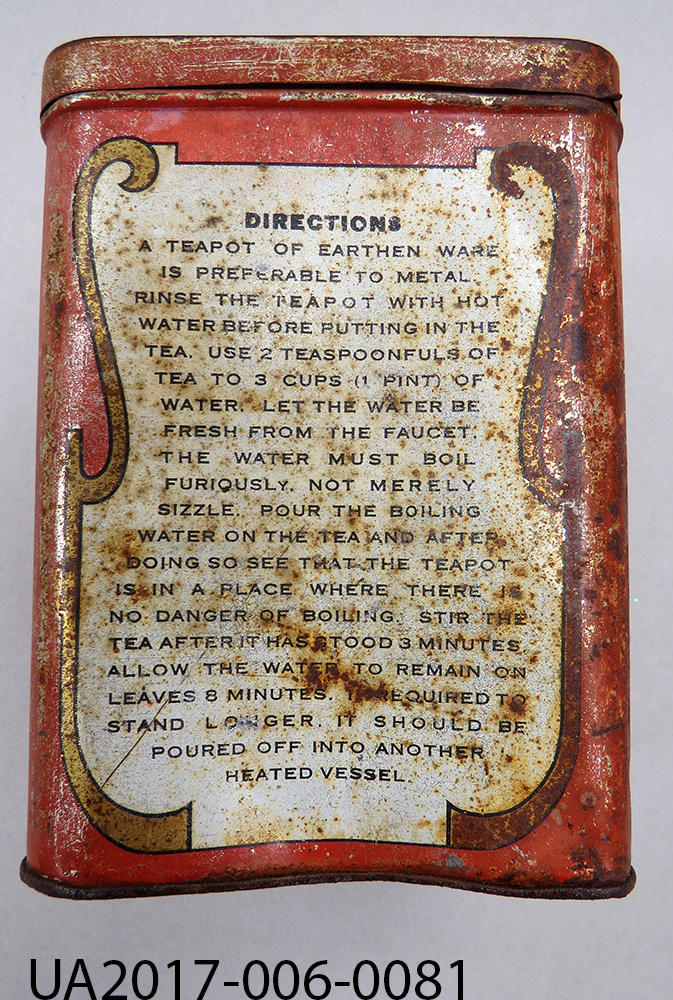 DIRECTIONS
A TEAPOT OF EARTHEN WARE
IS PREFERABLE TO METAL.
RINSE THE TEAPOT WITH HOT
WATER BEFORE PUTTING IN THE
TEA. USE 2 TEASPOONFULS OF
TEA TO 3 CUPS (1 PINT) OF
WATER. LET THE WATER BE
FRESH FROM THE FAUCET;
THE WATER MUST BOIL
FURIOUSLY, NOT MERELY
SIZZLE. POUR THE BOILING
WATER ON THE TEA AND AFTER
DOING SO SEE THAT THE TEAPOT
IS IN A PLACE WHERE THERE IS
NO DANGER OF BOILING. STIR THE
TEA AFTER IT HAS STOOD 3 MINUTES
ALLOW THE WATER TO REMAIN ON
LEAVES 8 MINUTES. IF REQUIRED TO
STAND LONGER, IT SHOULD BE
POURED OFF INTO ANOTHER
HEATED VESSEL.
UA2017-006-0081